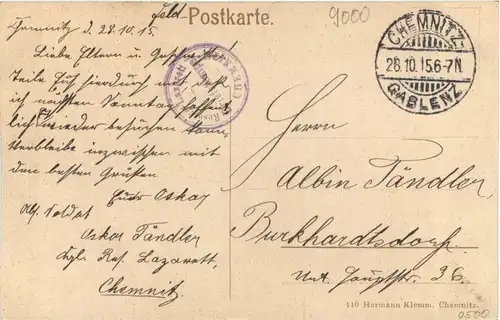 Feld-Postkarte.
9000
Chemnitz d. 28.10.15.
Liebe Eltern u. Geschwister!
Teile Euch hierdurch mit, daß
ich nächsten Sonntag hoffent-
lich wieder besuchen kann
Verbleibe inzwischen mit
den besten Grüßen
Euer Oskar
Abs. Soldat
Oskar Tändler
Kgl. Res. Lazarett,
Chemnitz.
CHEMNITZ-
28.10.15.6-7N.
GABLENZ
Herrn
Albin Tändler,
Burkhardtsdorf.
Unt. Hauptstr. 36.
110 Hermann Klemm, Chemnitz.
0500